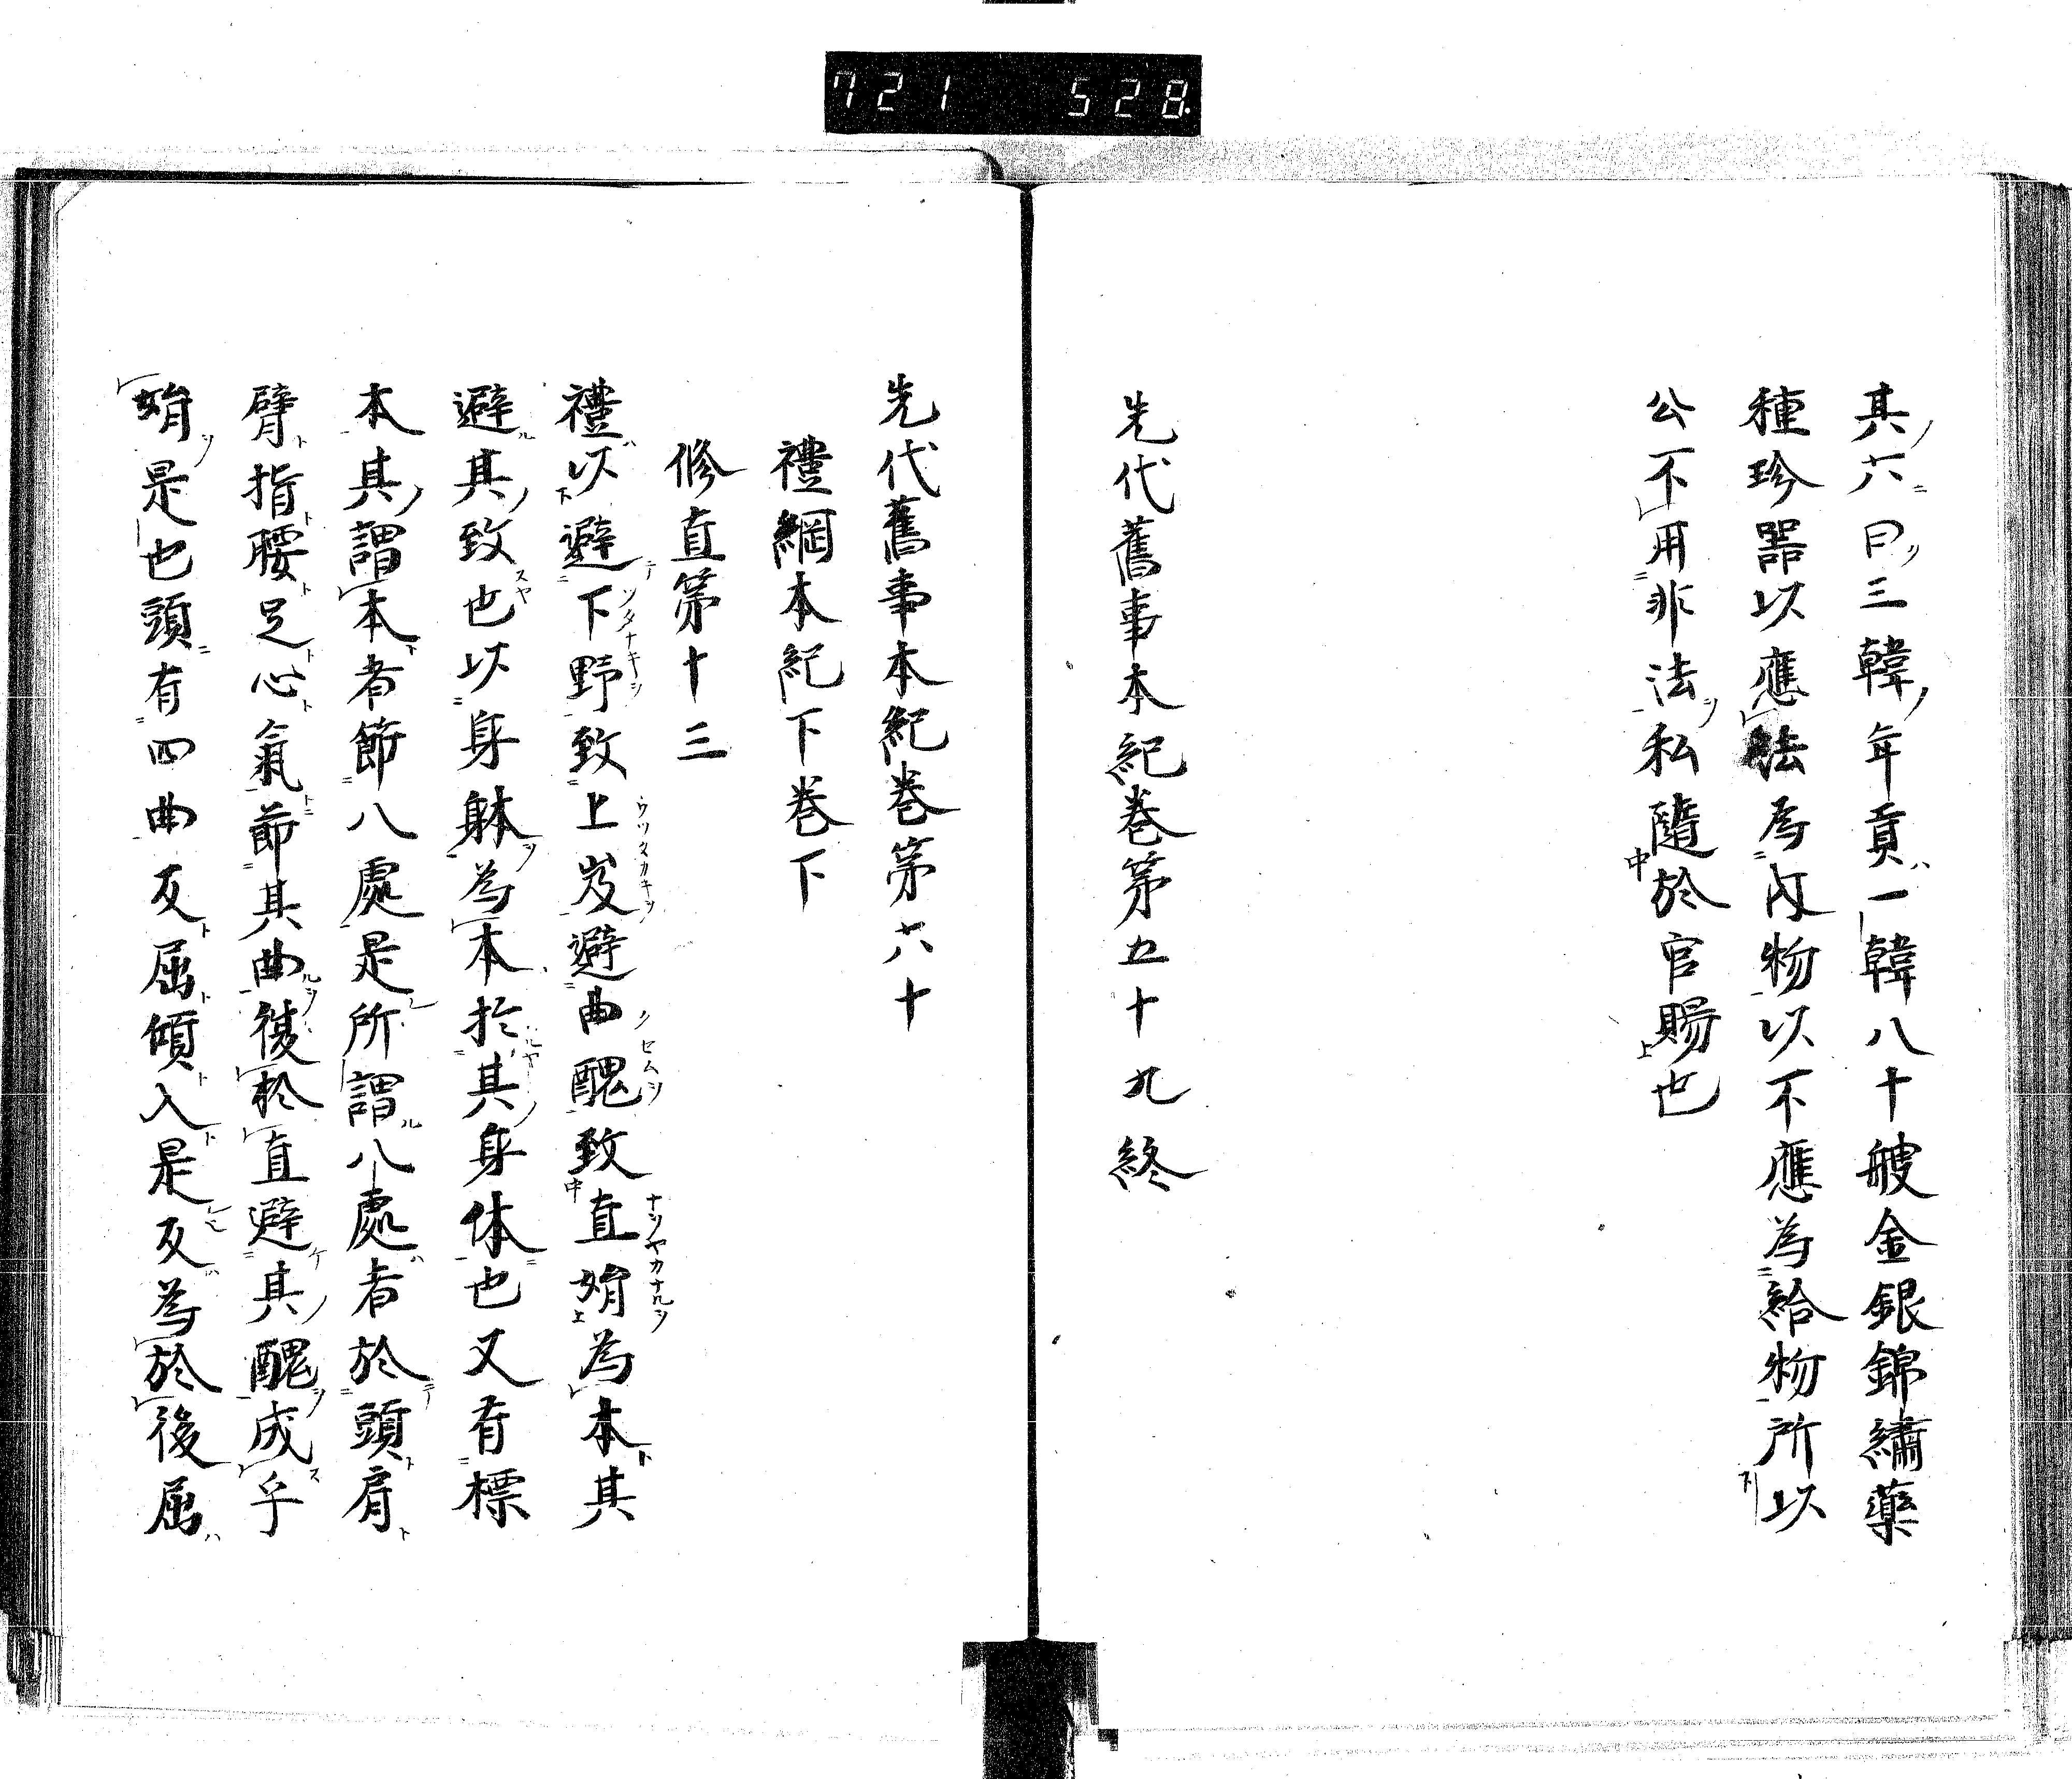 721 528
其六曰三韓年貢一韓八十艘金銀錦繡藥
種珍器以應法為内物以不應為給物所以
公不用非法私隨於官賜也
先代舊事本紀卷第五十九終
先代舊事本紀卷第六十
禮綱本紀下卷下
修直第十三
禮以避下野致上岌避曲醜致直媋為本其
避其致也以身躰為本於其身体也又有標
本其謂本者節八處是所謂八處者於頭肩
臂指腰足心氣節其曲後於直避其醜成乎
是也頭有四曲反屈傾入是反為於後屈